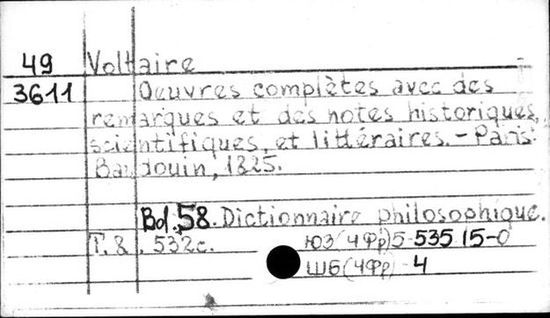 49 Voltaire
3611 Oeuvres complètes avec des
remarques et des notes historiques,
scientifiques, et littéraires. - Paris:
Baudouin, 1825.
Bd. 58. Dictionnaire philosophique.
T. 8, 532c. ЮЗ(4Фр)5-535 15-0
ШБ(4Фр)-4